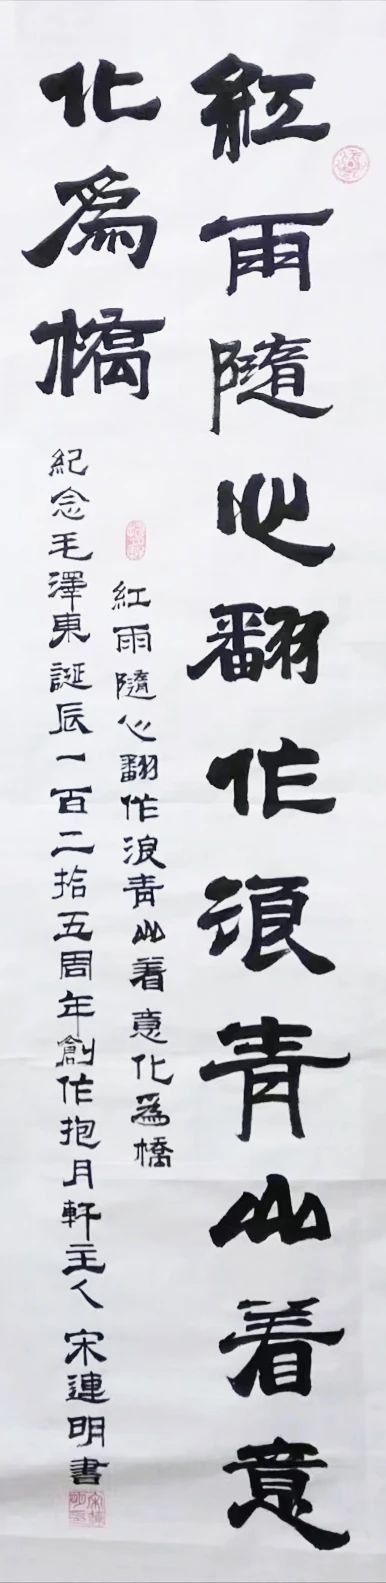 紅雨隨心翻作浪青山着意
化為橋
紅雨隨心翻作浪青山着意化為橋
紀念毛澤東誕辰一百二拾五周年創作抱月軒主人宋連明書